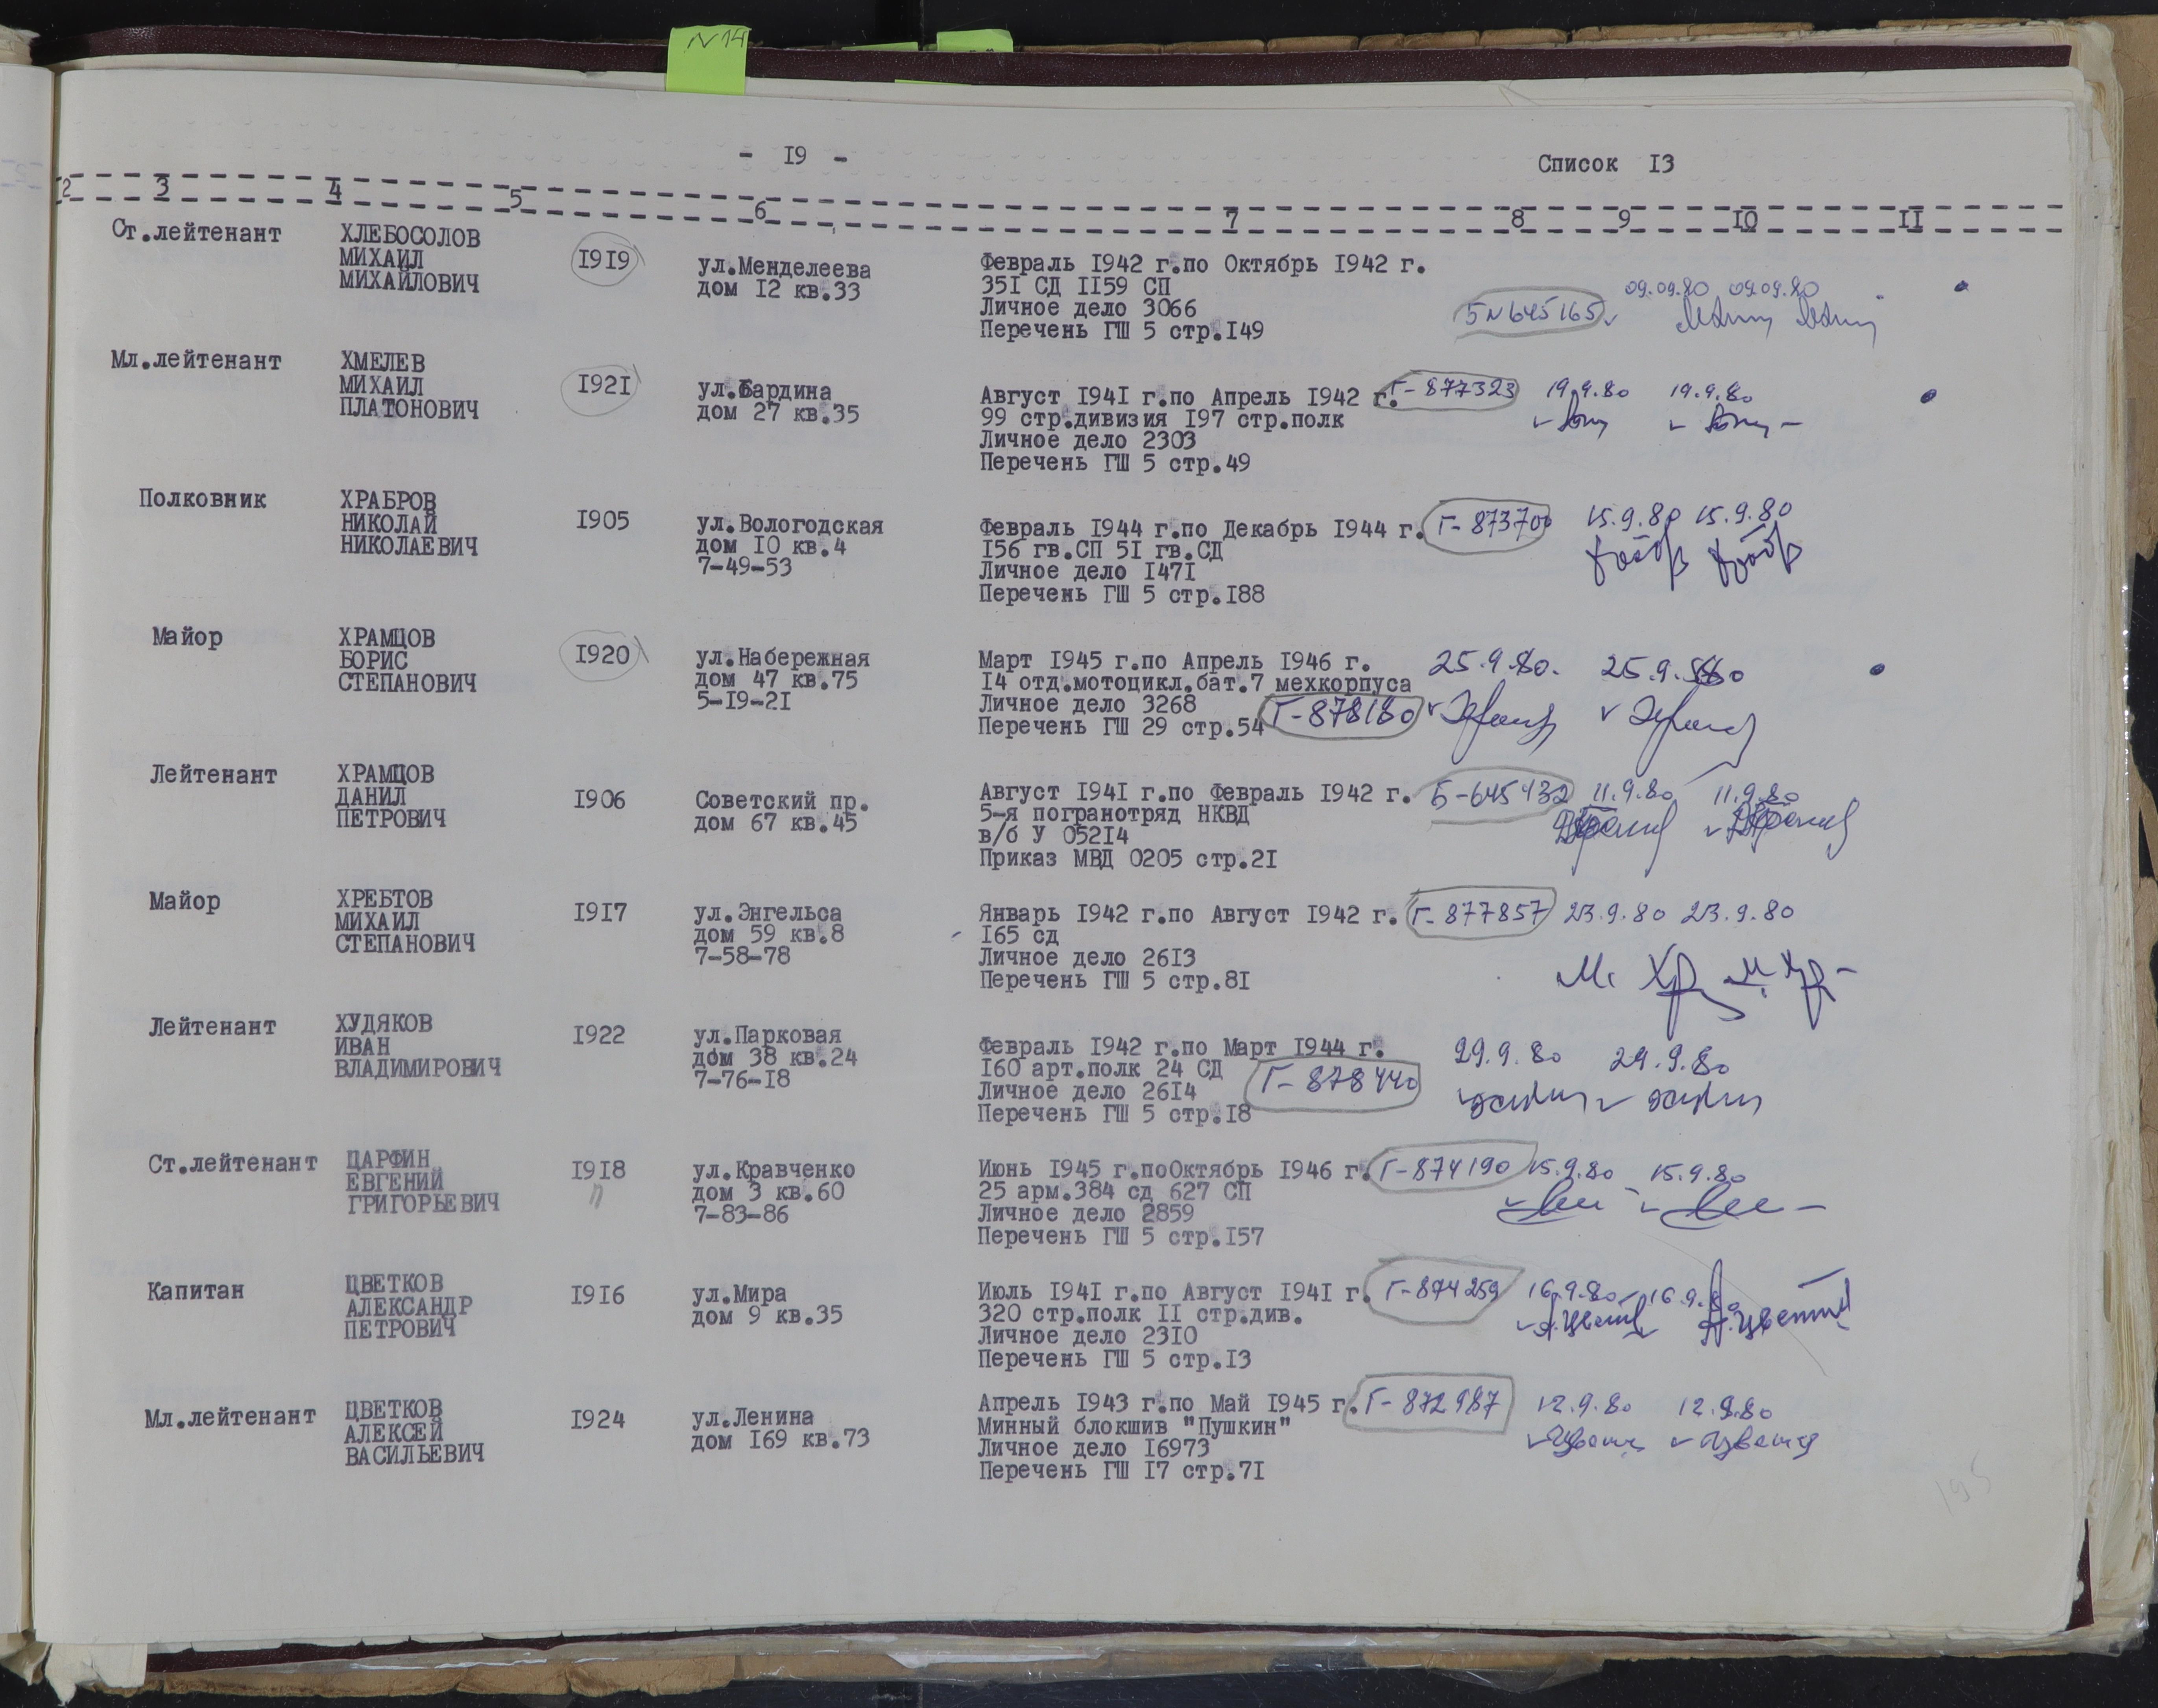 N14
- I9 -
Список I3
2 3 4 5 6 7 8 9 IO II
Ст.лейтенант
ХЛЕБОСОЛОВ
МИХАИЛ
МИХАЙЛОВИЧ
I9I9
ул.Менделеева
дом I2 кв.33
Февраль I942 г.по Октябрь I942 г.
35I СД II59 СП
Личное дело 3066
Перечень ГШ 5 стр.I49
БN645165
09.09.80 09.09.80
Мл.лейтенант
ХМЕЛЕВ
МИХАИЛ
ПЛАТОНОВИЧ
I92I
ул.Бардина
дом 27 кв.35
Август I94I г.по Апрель I942 г.
99 стр.дивизия I97 стр.полк
Личное дело 2303
Перечень ГШ 5 стр.49
Г-877323
19.9.80 19.9.80
Полковник
ХРАБРОВ
НИКОЛАЙ
НИКОЛАЕВИЧ
I905
ул.Вологодская
дом IO кв.4
7-49-53
Февраль I944 г.по Декабрь I944 г.
I56 гв.СП 5I гв.СД
Личное дело I47I
Перечень ГШ 5 стр.I88
Г-873700
15.9.80 15.9.80
Майор
ХРАМЦОВ
БОРИС
СТЕПАНОВИЧ
I920
ул.Набережная
дом 47 кв.75
5-I9-2I
Март I945 г.по Апрель I946 г.
I4 отд.мотоцикл.бат.7 мехкорпуса
Личное дело 3268
Перечень ГШ 29 стр.54
Г-878180
25.9.80. 25.9.80
Лейтенант
ХРАМЦОВ
ДАНИЛ
ПЕТРОВИЧ
I906
Советский пр.
дом 67 кв.45
Август I94I г.по Февраль I942 г.
5-я погранотряд НКВД
в/б У 052I4
Приказ МВД 0205 стр.2I
Б-645432
11.9.80 11.9.80
Майор
ХРЕБТОВ
МИХАИЛ
СТЕПАНОВИЧ
I9I7
ул.Энгельса
дом 59 кв.8
7-58-78
Январь I942 г.по Август I942 г.
I65 сд
Личное дело 26I3
Перечень ГШ 5 стр.8I
Г-877857
23.9.80 23.9.80
М. Хр М. Хр
Лейтенант
ХУДЯКОВ
ИВАН
ВЛАДИМИРОВИЧ
I922
ул.Парковая
дом 38 кв.24
7-76-I8
Февраль I942 г.по Март I944 г.
I60 арт.полк 24 СД
Личное дело 26I4
Перечень ГШ 5 стр.I8
Г-878440
29.9.80 29.9.80
Ст.лейтенант
ЦАРФИН
ЕВГЕНИЙ
ГРИГОРЬЕВИЧ
I9I8
п
ул.Кравченко
дом 3 кв.60
7-83-86
Июнь I945 г.поОктябрь I946 г.
25 арм.384 сд 627 СП
Личное дело 2859
Перечень ГШ 5 стр.I57
Г-874190
15.9.80 15.9.80
Капитан
ЦВЕТКОВ
АЛЕКСАНДР
ПЕТРОВИЧ
I9I6
ул.Мира
дом 9 кв.35
Июль I94I г.по Август I94I г.
320 стр.полк II стр.див.
Личное дело 23I0
Перечень ГШ 5 стр.I3
Г-874259
16.9.80 16.9.80
Мл.лейтенант
ЦВЕТКОВ
АЛЕКСЕЙ
ВАСИЛЬЕВИЧ
I924
ул.Ленина
дом I69 кв.73
Апрель I943 г.по Май I945 г.
Минный блокшив "Пушкин"
Личное дело I6973
Перечень ГШ I7 стр.7I
Г-872987
12.9.80 12.9.80
195